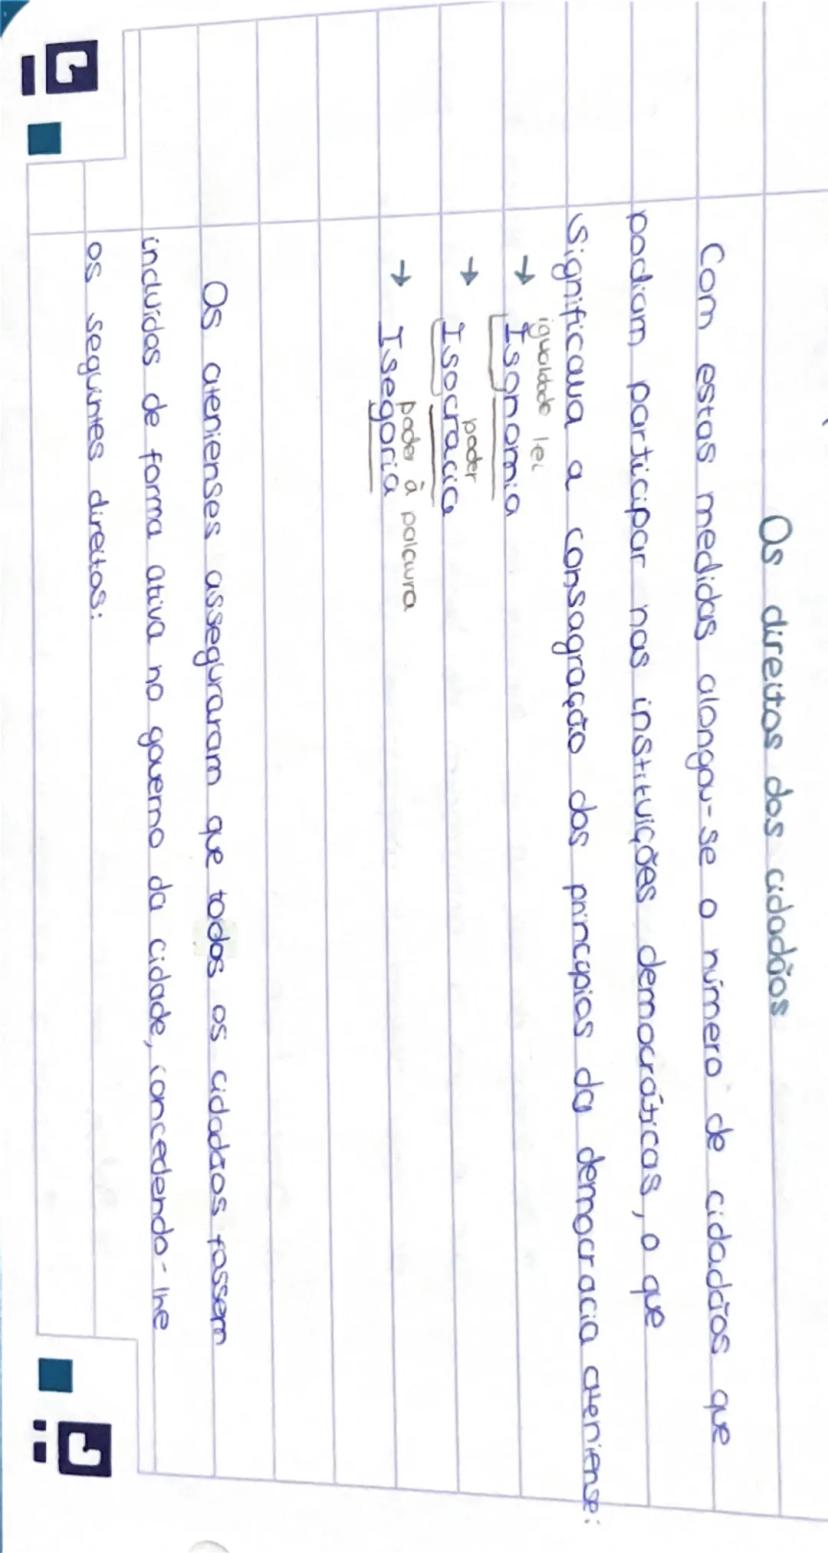 Os direitos dos cidadãos
Com estas medidas alongou-se o número de cidadãos que
podiam participar nas instituições democráticas, o que
significava a consagração dos princípios da democracia ateniense:
igualdade lei
→ Isonomia
poder
→ Isocracia
→ Isegoria
poder à palavra
Os atenienses asseguraram que todos os cidadãos fossem
incluídos de forma ativa no governo da cidade, concedendo-lhe
os seguintes direitos: